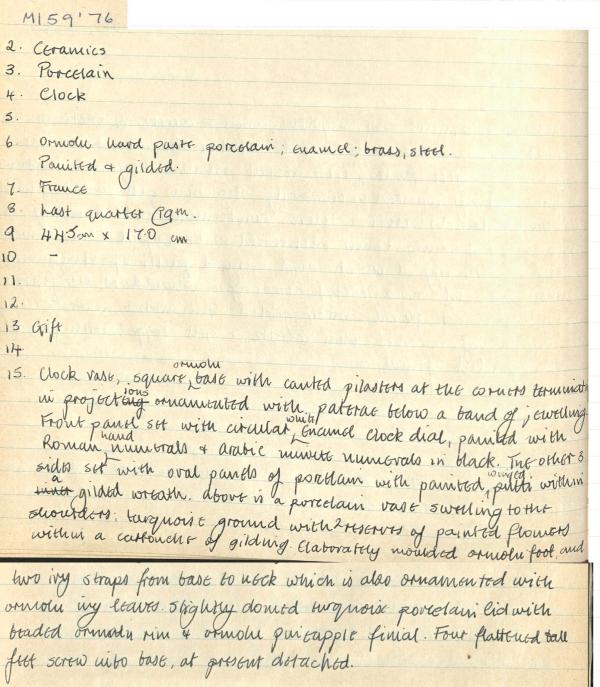 M159'76
2. Ceramics
3. Porcelain
4. Clock
5.
6. Ormolu hard paste porcelain; enamel; brass, steel.
Painted & gilded.
7. France
8. Last quarter C19th.
9 44.5cm x 17.0 cm
10 -
11.
12.
13 Gift
14
15. Clock vase, square, ormolu base with canted pilasters at the corners terminating
in projections ornamented with paterae below a band of jewelling
Front panel set with circular, white enamel clock dial, painted with
Roman hand numerals & arabic minute numerals in black. The other 3
sides set with oval panels of porcelain with painted, winged putti within
a gilded wreath. Above is a porcelain vase swelling to the
shoulders: turquoise ground with 2 reserves of painted flowers
within a cartouche of gilding. Elaborately moulded ormolu foot, and
two ivy straps from base to neck which is also ornamented with
ormolu ivy leaves. Slightly domed turquoise porcelain lid with
beaded ormolu rim & ormolu pineapple finial. Four flattened ball
feet screw into base, at present detached.